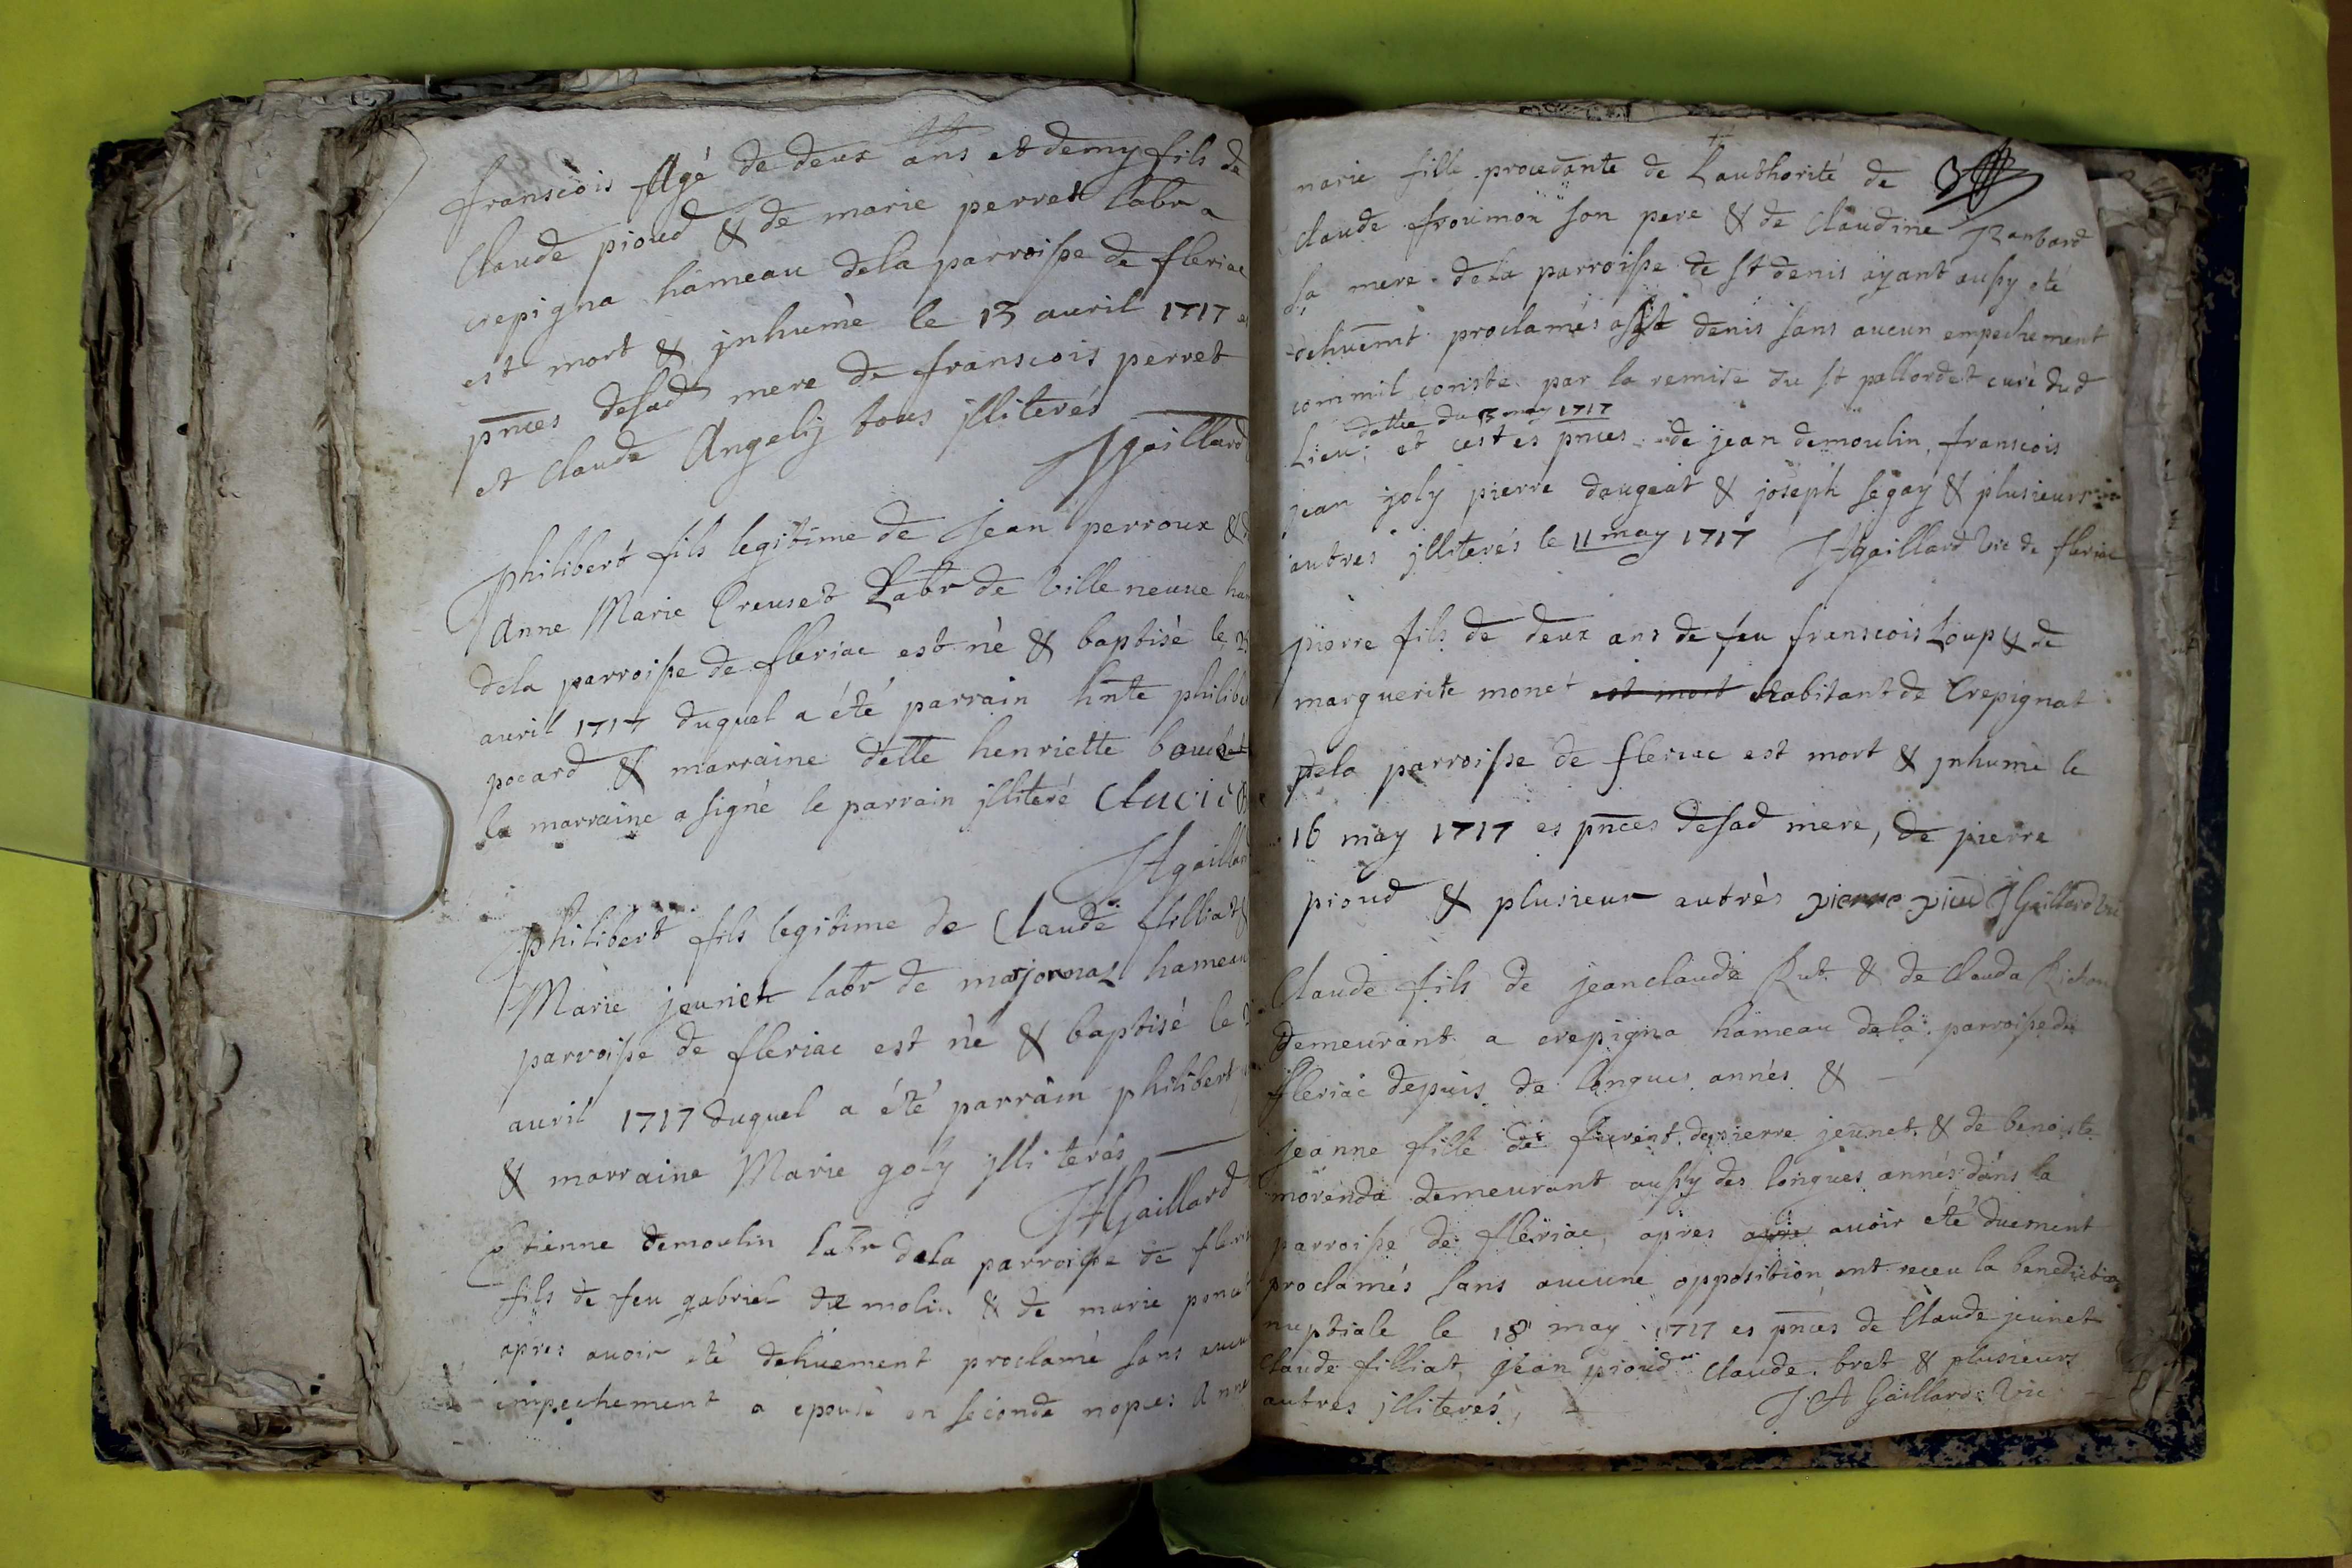 franscois Agé de deux ans et demy fils de
Claude pioud & de marie perret labr a
crepigna hameau dela parroisse de fleriac
est mort & jnhumè le 13 auril 1717 es
pnces desad mere de franscois perret
et claude Angelij tous jlliterés
JAgaillard
Philibert fils legitime de Jean perroux &
Anne Marie Creuset Labr de Ville neuue ham
dela parroisse de fleriac est né & baptisè le 25
auril 1717 duquel a été parrain hnte philibe
pocard & marraine delle henriette
la marraine a signé le parrain jlliteré
JAgaillard
Philibert fils legitime de Claude filliat &
Marie jeunet labr de majornas hameau
parroisse de fleriac est né & baptisé le
auril 1717 duquel a été parrain philibert
& marraine Marie goly jlliterés
JAGaillard
Etienne demoulin labr dela parroisse de fleria
fils de feu gabriel de molin & de marie poncet
apres auoir eté dehuement proclamé sans aucun
empechement a epousé en seconde nopces Anne
marie fille procedante de Lauthorité de
claude froumon son pere & de Claudine Ranbard
sa mere dela parroisse de st denis ayant aussy eté
dehuemt proclamés a st denis sans aucun empechement
comm'il conste par la remise du sr pallordet curé dud
dattée du 13 may 1717
Lieu; et cest es pnces de jean demoulin, franscois
jean joly pierre daugeat & joseph segay & plusieurs
autres jlliterés le 11 may 1717 JAgaillard Vic de fleriac
pierre fils de deux ans de feu franscois Loup & de
marguerite monet est mort habitant de Crepignat
dela parroisse de fleriac est mort & jnhumé le
16 may 1717 es pnces desad mere, de pierre
pioud & plusieur autrés pierre pioud JGaillard Vic
Claude fils de jeanclaude Rut & de Clauda
demeurant a crepigna hameau dela parroisse de
fleriac depuis de longues annés &
jeanne fille de de pierre jeunet & de benoiste
morenda demeurant aussy des longues annés dans la
parroisse de fleriac, apres auoir eté duement
proclamés sans aucune opposition ont receu la benediction
nuptiale le 18 may 1717 es pnces de Claude jeunet
Claude filliat, jean pioud Claude bret & plusieurs
autres jlliterés, JA Gaillard Vic